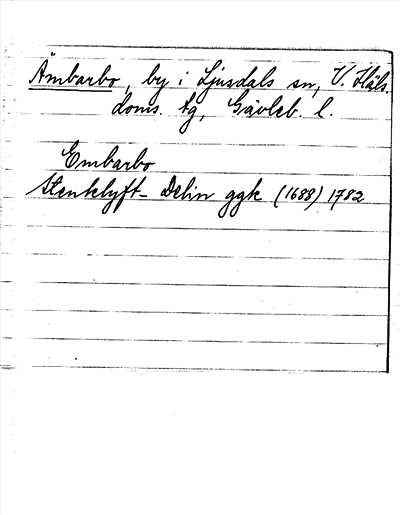 Ämbarbo, by i Ljusdals sn, V. Häls.
doms. tg, Gävleb. l.
Embarbo
Stenklyft- Delin ggk (1688) 1782